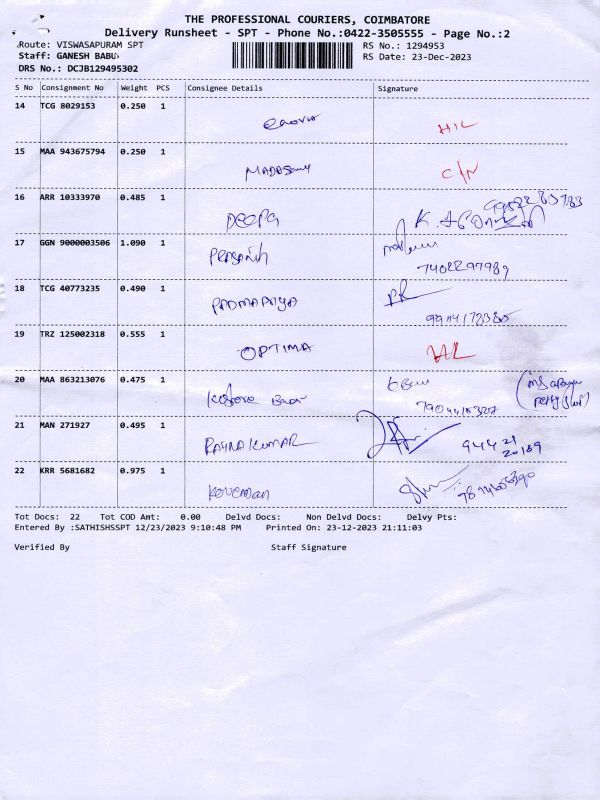 THE PROFESSIONAL COURIERS, COIMBATORE
Delivery Runsheet - SPT - Phone No.:0422-3505555 - Page No.:2
Route: VISWASAPURAM SPT
RS No.: 1294953
Staff: GANESH BABU
RS Date: 23-Dec-2023
DRS No.: DCJB129495302
S No Consignment No Weight PCS Consignee Details Signature
14 TCG 8029153 0.250 1 H/L
15 MAA 943675794 0.250 1 MADASAMY C/N
16 ARR 10333970 0.485 1 DEEPA
17 GGN 9000003506 1.090 1 PRASANTH
7402297989
18 TCG 40773235 0.490 1 PADMAPRIYA PR
19 TRZ 125002318 0.555 1 OPTIMA H/L
20 MAA 863213076 0.475 1
21 MAN 271927 0.495 1 RAJNAKUMAR 94421
20189
22 KRR 5681682 0.975 1
Tot Docs: 22 Tot COD Amt: 0.00 Delvd Docs: Non Delvd Docs: Delvy Pts:
Entered By :SATHISHSSPT 12/23/2023 9:10:48 PM Printed On: 23-12-2023 21:11:03
Verified By Staff Signature